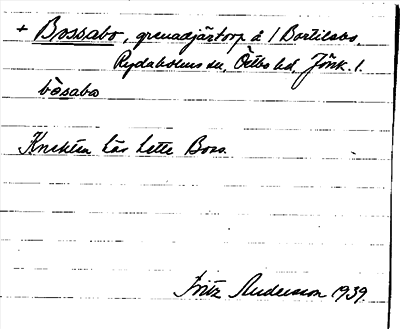 + Bossabo, grenadjärtorp å 1 Bortilsbo,
Rydaholms sn, Östbo hd, Jönk. l.
bòsabo
Knekten här hette Boss.
Fritz Andersson 1939.